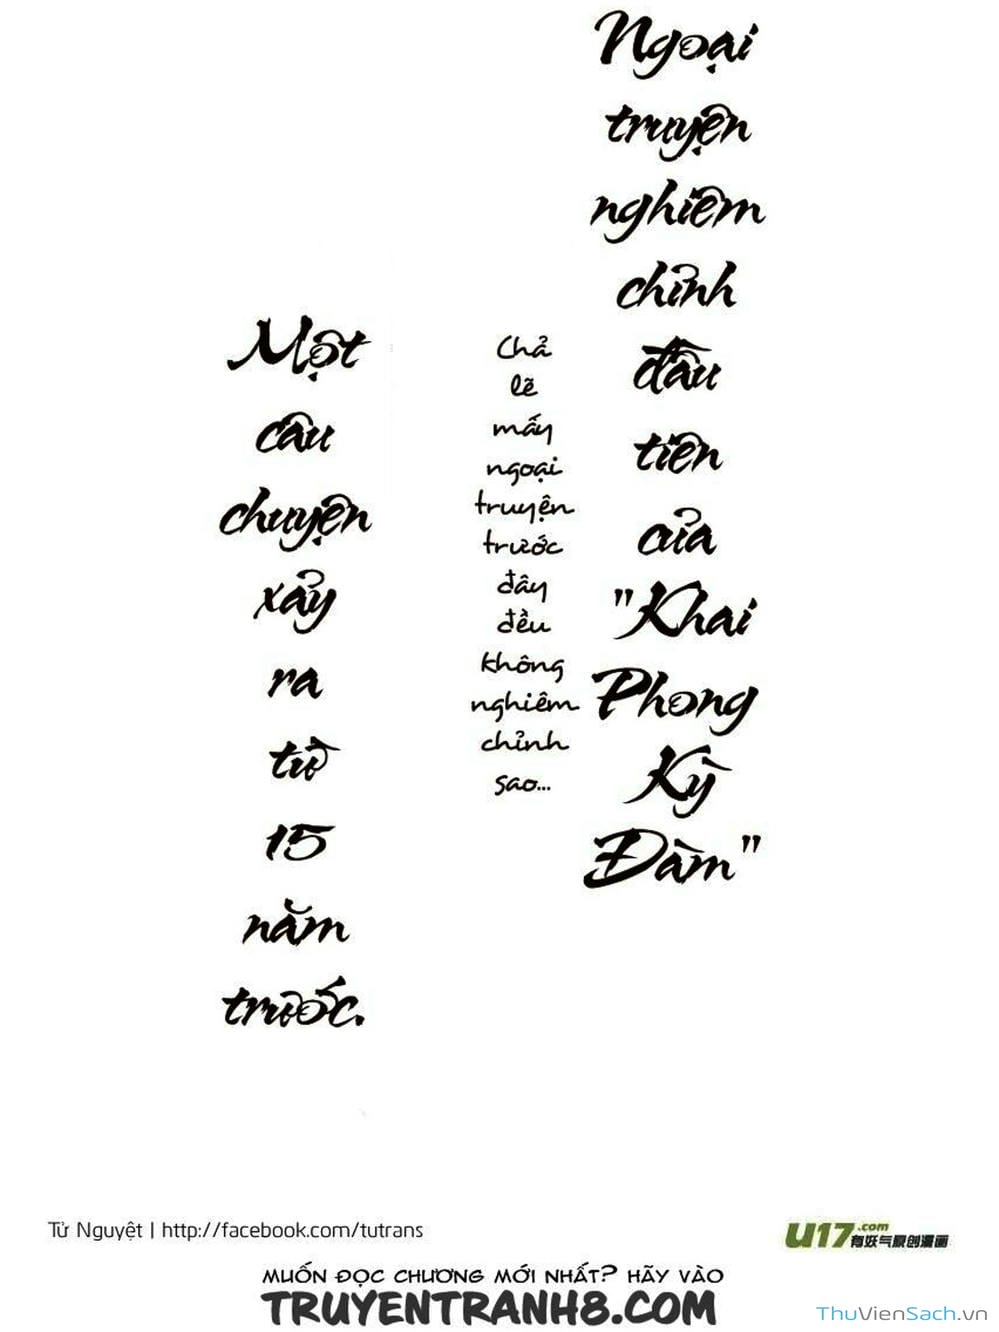 Ngoại
truyện
nghiêm
chỉnh
đầu
tiên
của
"Khai
Phong
Kỳ
Đàm"
Chả
lẽ
mấy
ngoại
truyện
trước
đây
đều
không
nghiêm
chỉnh
sao...
Một
câu
chuyện
xảy
ra
từ
15
năm
trước.
Tử Nguyệt | http://facebook.com/tutrans
U17.com
有妖气原创漫画
MUỐN ĐỌC CHƯƠNG MỚI NHẤT? HÃY VÀO
TRUYENTRANH8.COM
ThuVienSach.vn